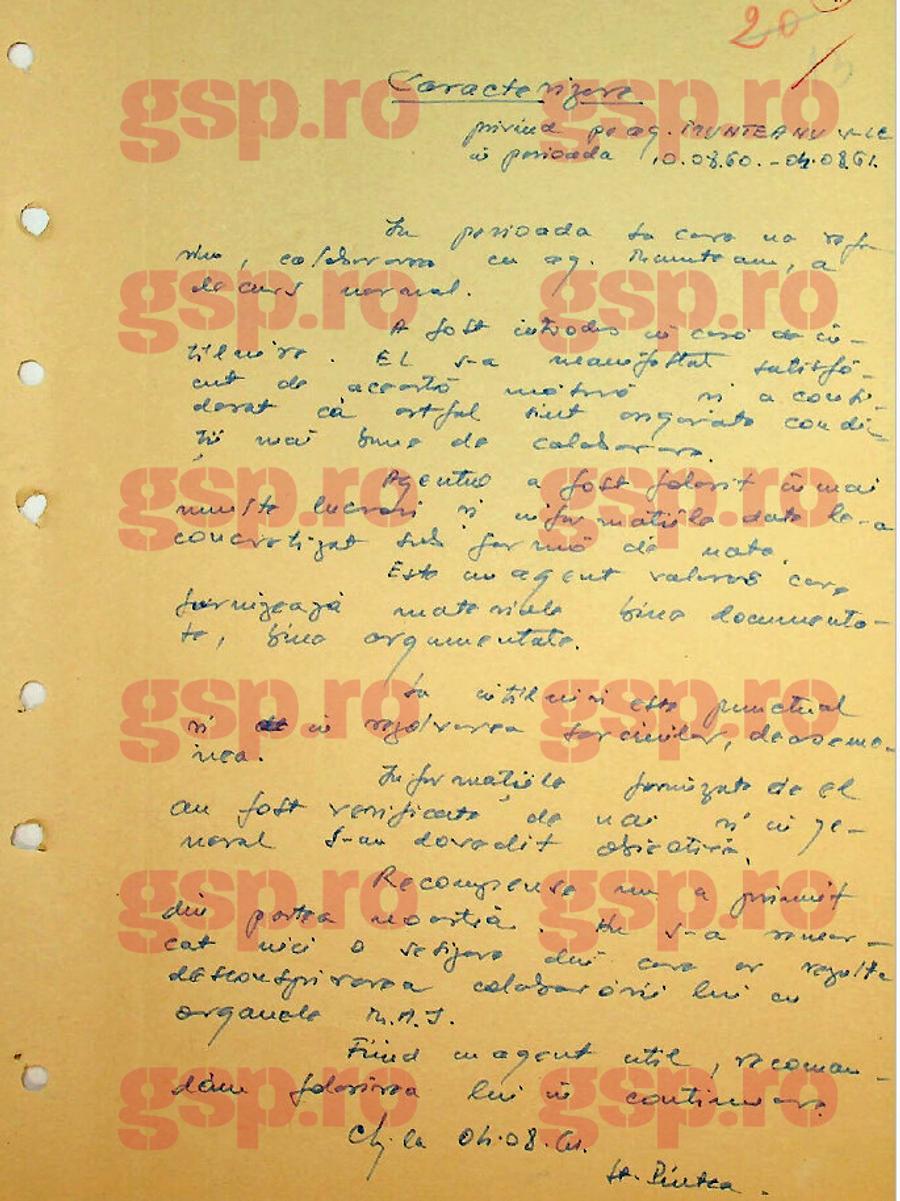 20
Caracterizare
privind pe ag. MUNTEANU V-LE
în perioada 10.08.60. - 04.08.61.
În perioada la care ne refe
rim, colaborarea cu ag. Munteanu, a
decurs normal.
A fost introdus în casă de în-
tîlnire. El s-a manifestat satisfă-
cut de această măsură și a consi-
derat că astfel sînt asigurate condi-
ții mai bune de colaborare.
Agentul a fost folosit în mai
multe lucrări și informațiile date le-a
concretizat sub formă de note.
Este un agent valoros care
furnizează materiale bine documenta-
te, bine argumentate.
La întîlniri este punctual
și în rezolvarea sarcinilor, deaseme-
nea.
Informațiile furnizate de el
au fost verificate de noi și în ge-
neral s-au dovedit obiective.
Recompense nu a primit
din partea noastră. Nu s-a remar-
cat nici o sesizare din care ar rezulta
desconspirarea colaborării lui cu
organele M.A.I.
Fiind un agent util, recoman-
dăm folosirea lui în continuare.
Cluj la 04.08.61.
gsp.ro gsp.ro
gsp.ro gsp.ro
gsp.ro gsp.ro
gsp.ro gsp.ro
gsp.ro gsp.ro
gsp.ro gsp.ro